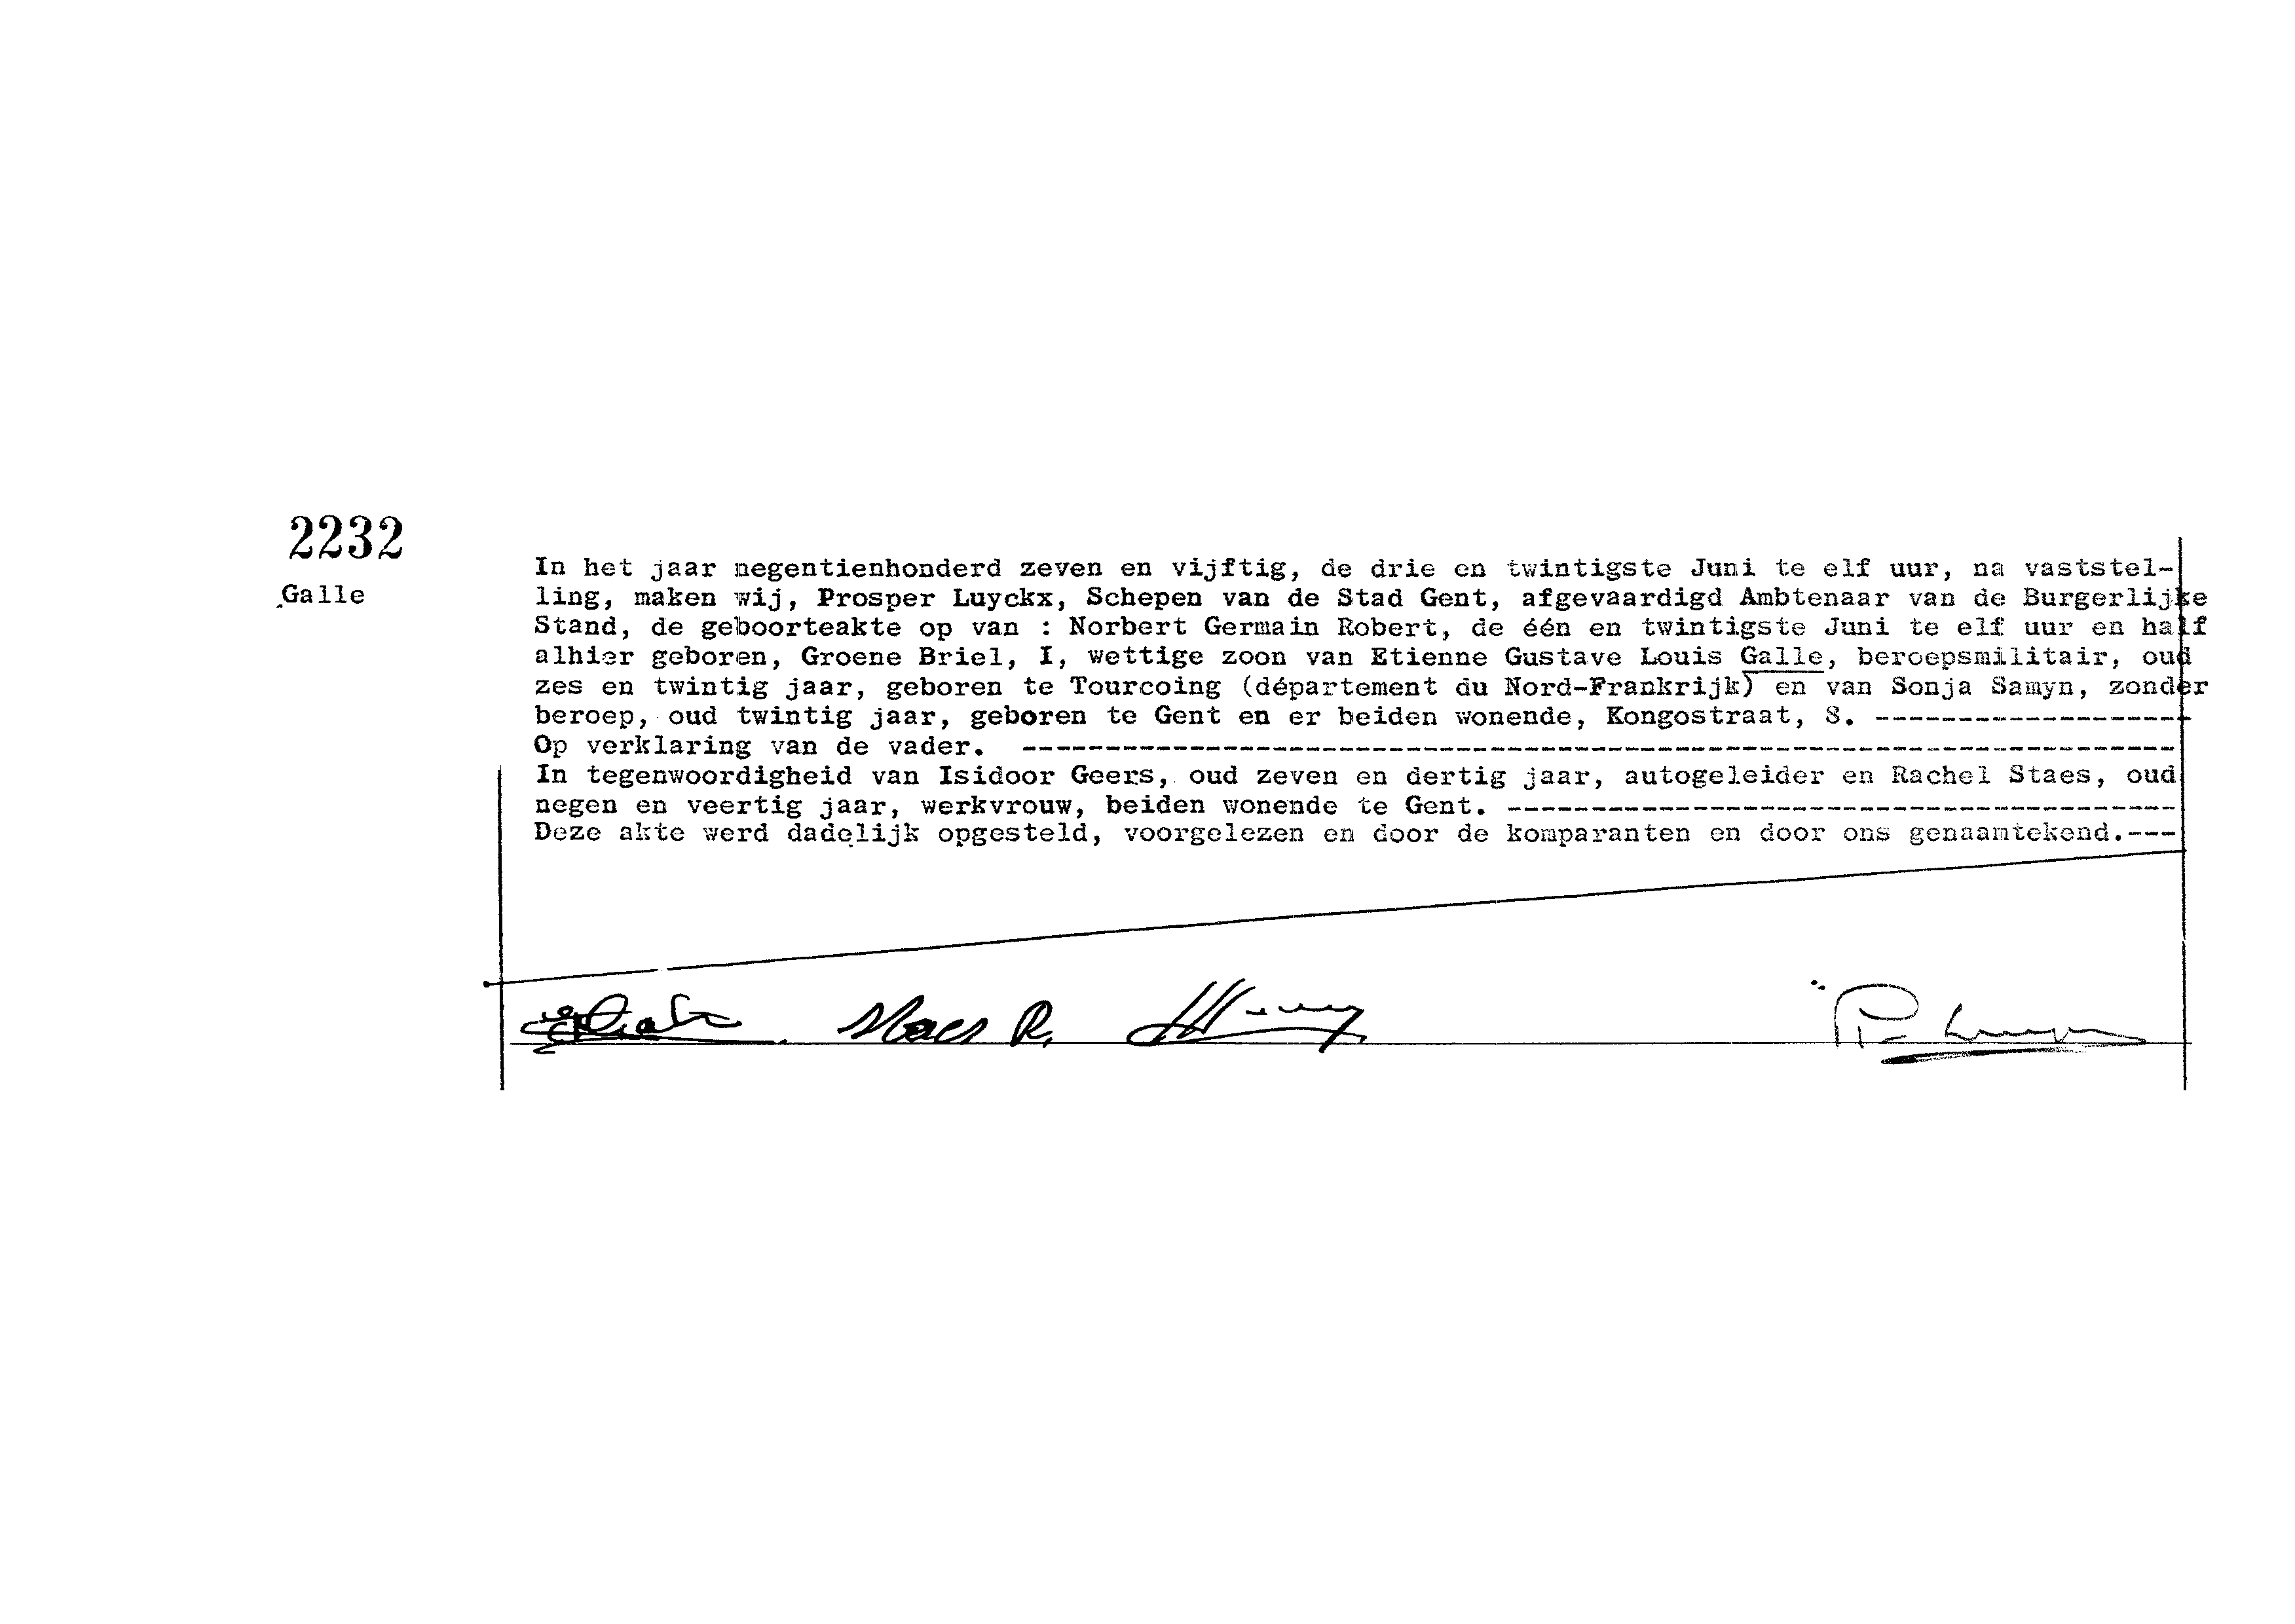 2232
Galle
In het jaar negentienhonderd zeven en vijftig, de drie en twintigste Juni te elf uur, na vaststel-
ling, maken wij, Prosper Luyckx, Schepen van de Stad Gent, afgevaardigd Ambtenaar van de Burgerlijke
Stand, de geboorteakte op van : Norbert Germain Robert, de één en twintigste Juni te elf uur en half
alhier geboren, Groene Briel, I, wettige zoon van Etienne Gustave Louis Galle, beroepsmilitair, oud
zes en twintig jaar, geboren te Tourcoing (département du Nord-Frankrijk) en van Sonja Samyn, zonder
beroep, oud twintig jaar, geboren te Gent en er beiden wonende, Kongostraat, 8. -------------------
Op verklaring van de vader. ----------------------------------------------------------------------
In tegenwoordigheid van Isidoor Geers, oud zeven en dertig jaar, autogeleider en Rachel Staes, oud
negen en veertig jaar, werkvrouw, beiden wonende te Gent. ----------------------------------------
Deze akte werd dadelijk opgesteld, voorgelezen en door de komparanten en door ons genaamtekend.---
Staes R.